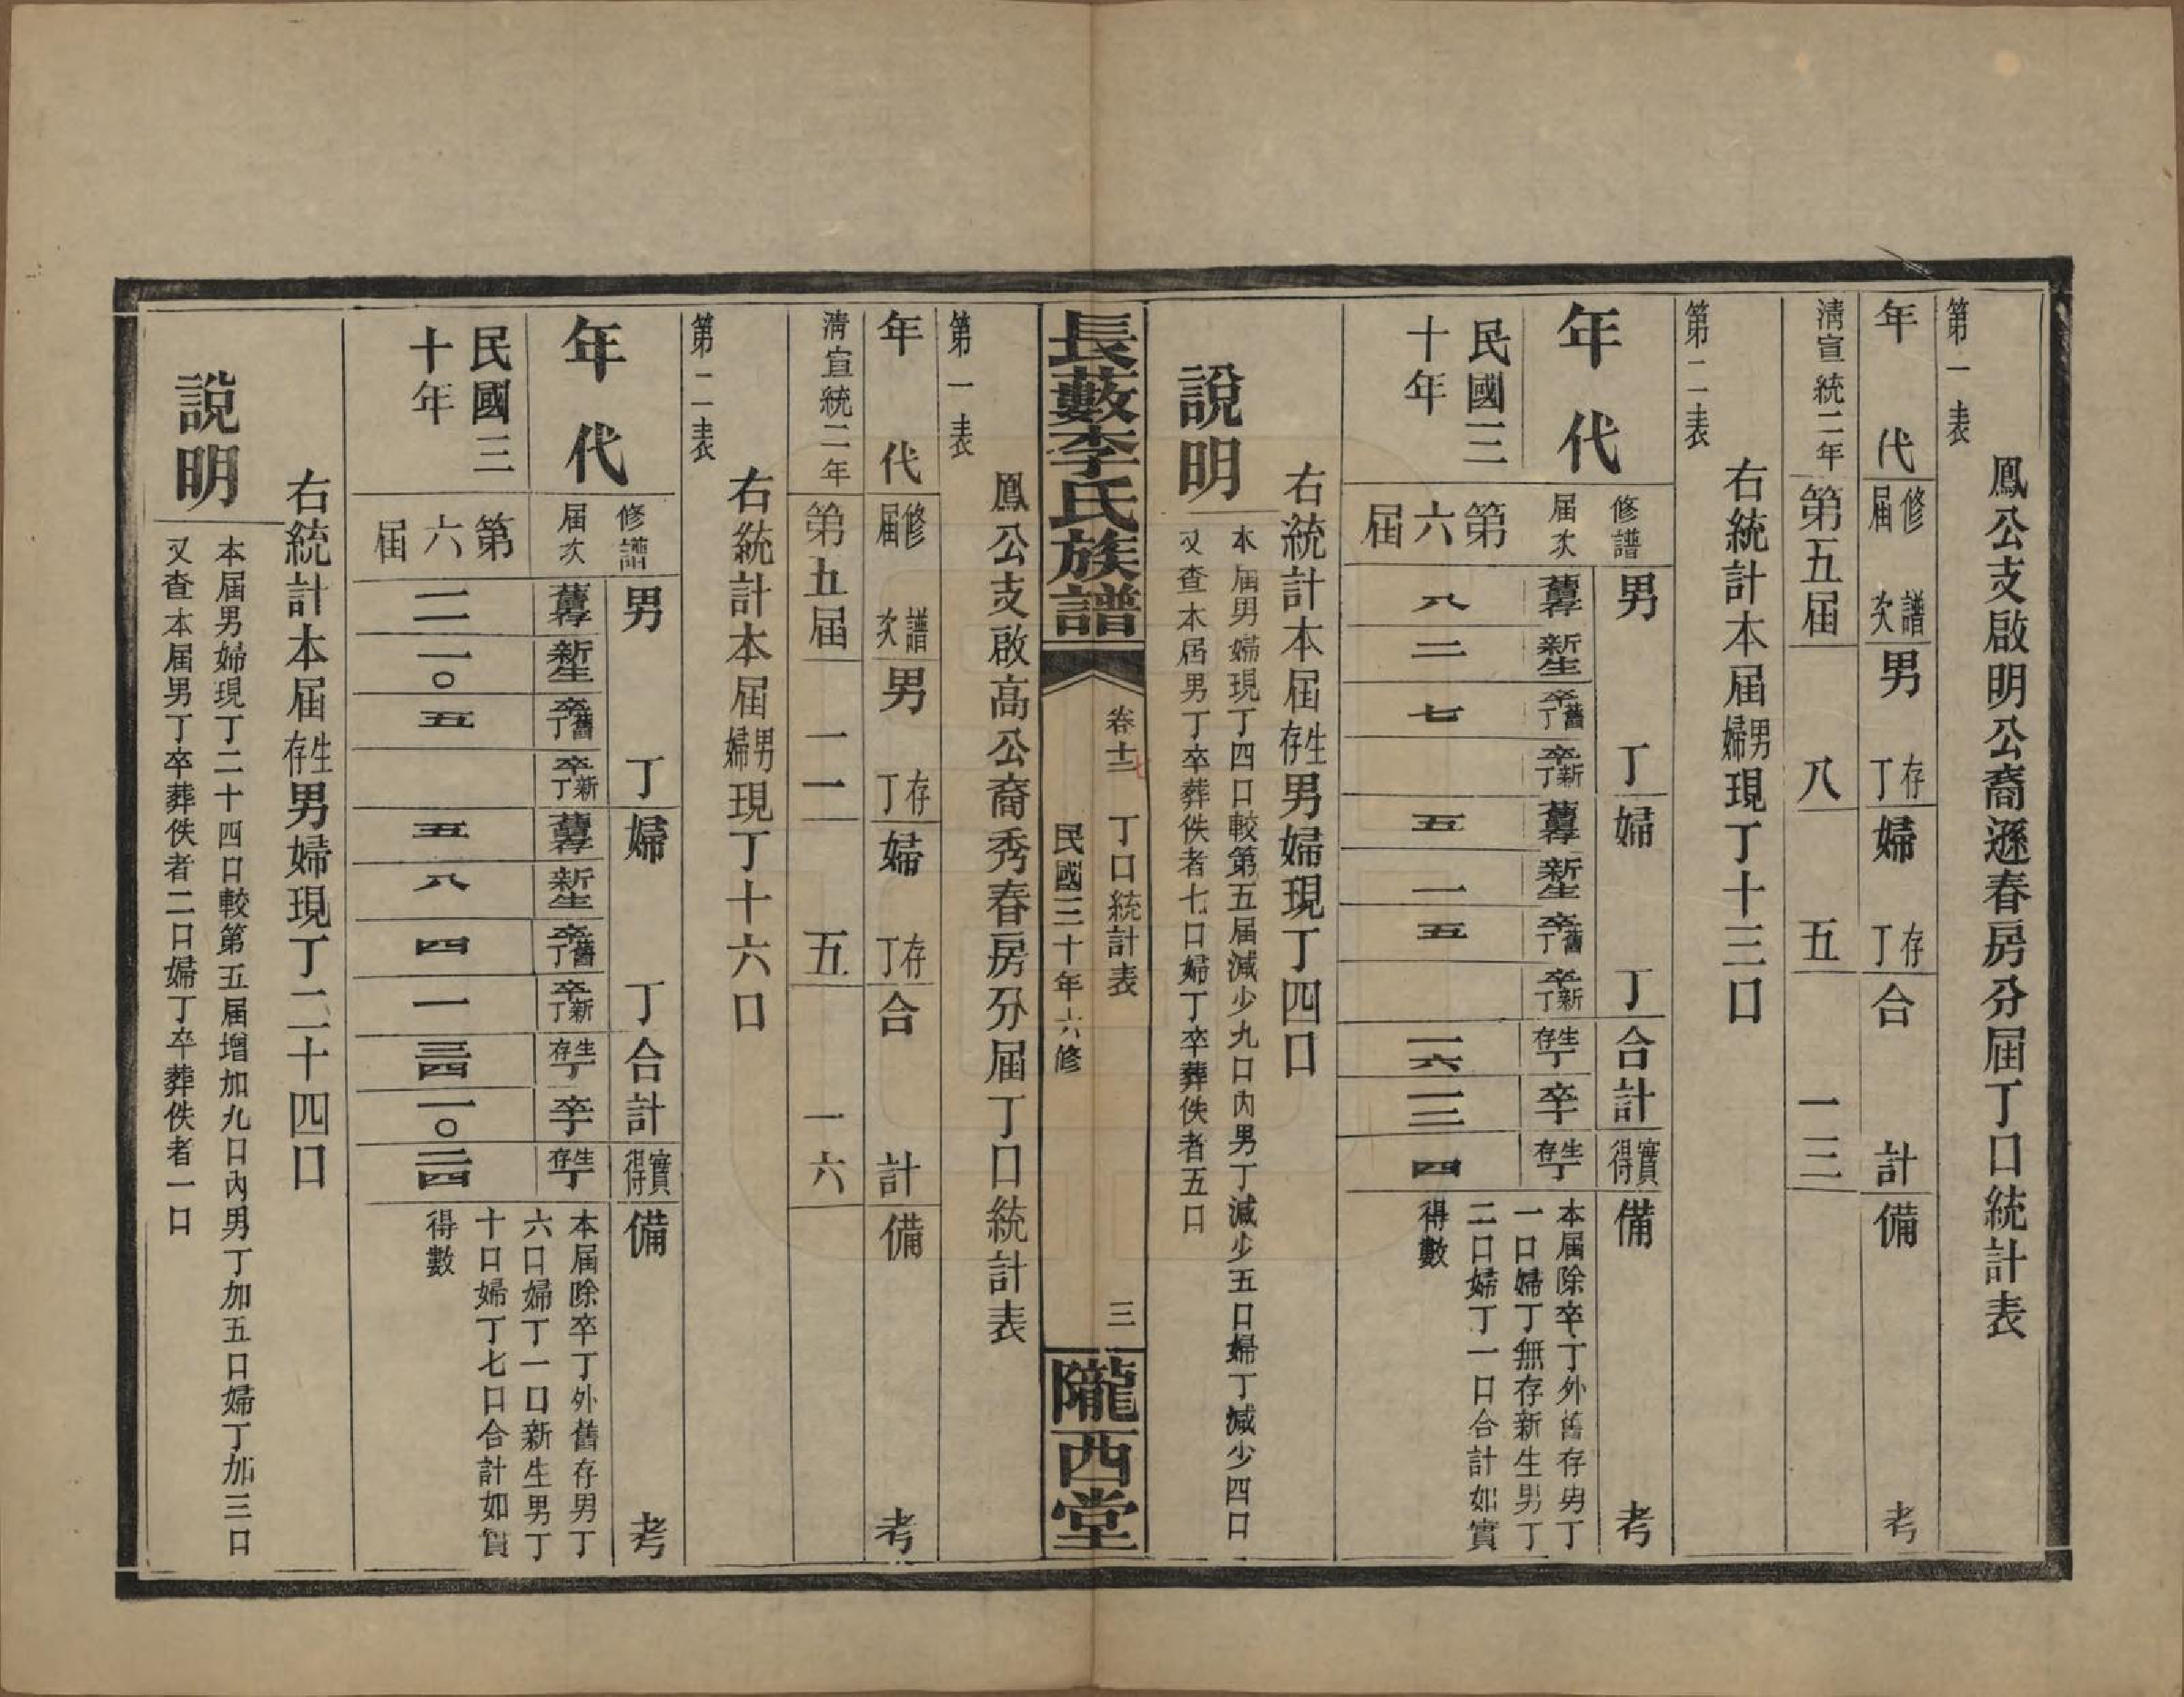 鳳公支啟明公裔遜春房分届丁口統計表
第一表
年代 修譜届次 男存丁 婦存丁 合計 備考
淸宣統二年 第五届 八 五 一三
右統計本届男婦現丁十三口
第二表
年代 修譜届次 男丁 婦丁 合計 實得 備考
舊存 新生 舊丁卒 新丁卒 舊存 新生 舊丁卒 新丁卒 生存丁 卒丁 生存丁
民國三十年 第六届 八 二 七 五 一 五 一六 一二 四
本届除卒丁外舊存男丁
一口婦丁無存新生男丁
二口婦丁一口合計如實
得數
右統計本届生存男婦現丁四口
說明
本届男婦現丁四口較第五届減少九口內男丁減少五口婦丁減少四口
又查本届男丁卒葬佚者七口婦丁卒葬佚者五口
長藪李氏族譜
卷十三 丁口統計表
民國三十年六修
三
隴西堂
鳳公支啟高公裔秀春房分届丁口統計表
第一表
年代 修譜届次 男存丁 婦存丁 合計 備考
淸宣統二年 第五届 一一 五 一六
右統計本届男婦現丁十六口
第二表
年代 修譜届次 男丁 婦丁 合計 實得 備考
舊存 新生 舊丁卒 新丁卒 舊存 新生 舊丁卒 新丁卒 生存丁 卒丁 生存丁
民國三十年 第六届 一一 一〇 五 五 八 四 一 三四 一〇 二四
本届除卒丁外舊存男丁
六口婦丁一口新生男丁
十口婦丁七口合計如實
得數
右統計本届生存男婦現丁二十四口
說明
本届男婦現丁二十四口較第五届增加九口內男丁加五口婦丁加三口
又查本届男丁卒葬佚者二口婦丁卒葬佚者一口